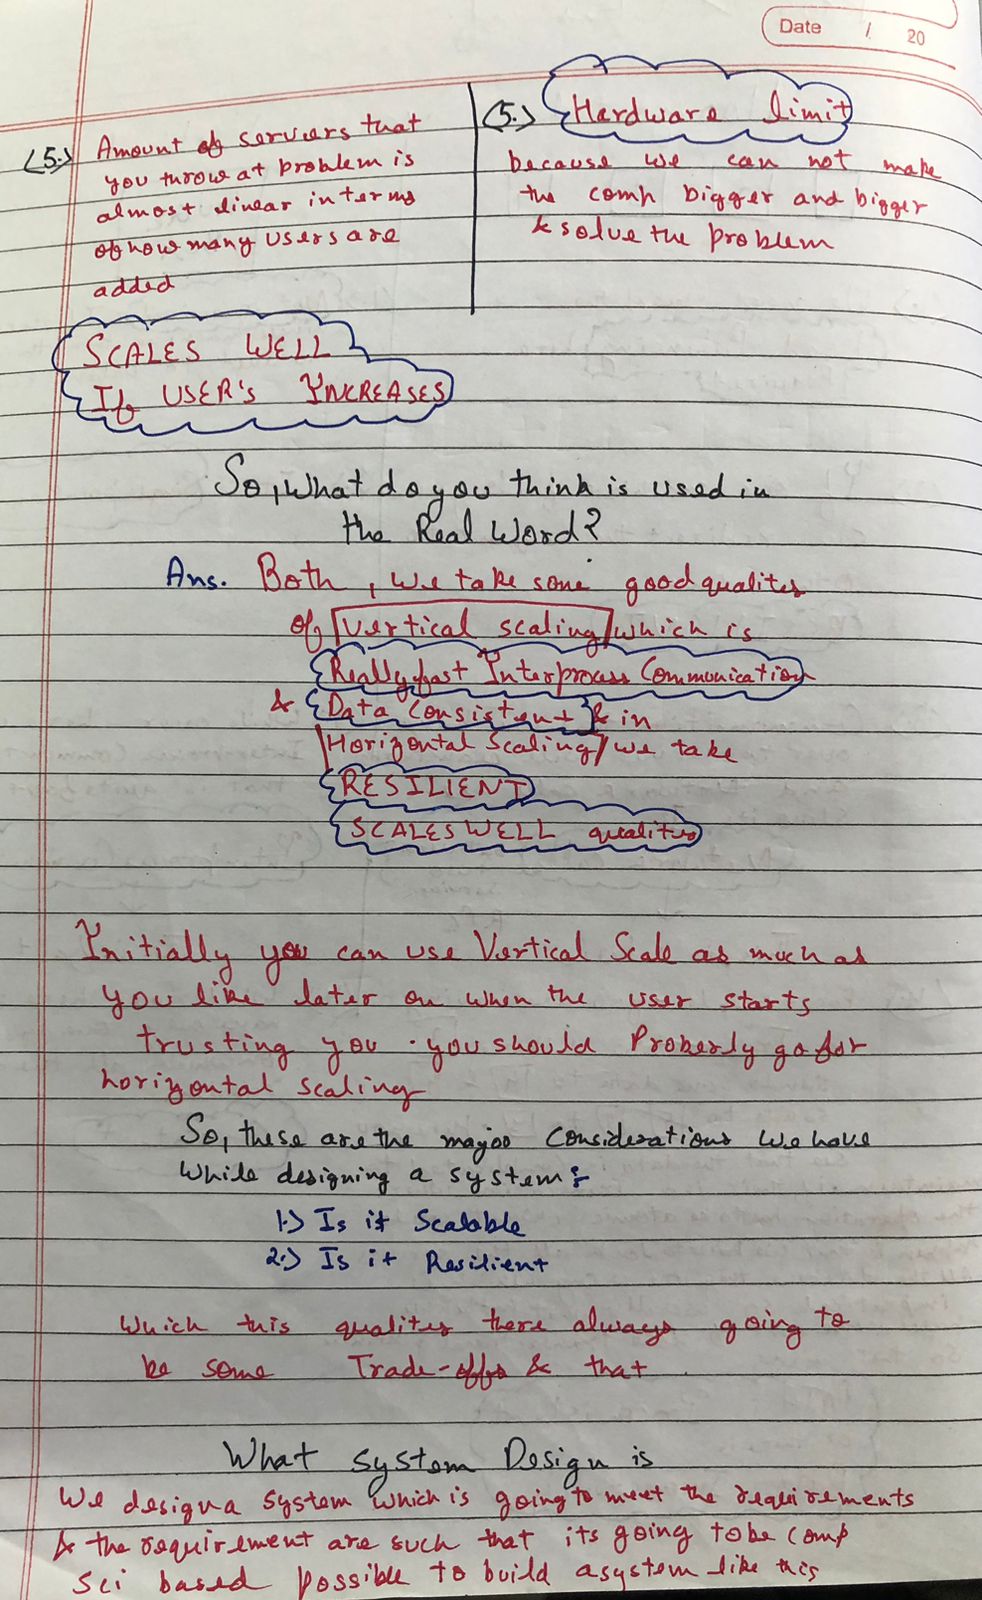 Date / 20
(5.) Amount of servers that
you throw at problem is
almost linear in terms
of how many users are
added
SCALES WELL
If USER'S INCREASES
(5.) Hardware limit
because we can not make
the comp bigger and bigger
& solve the problem
So, what do you think is used in
the Real Word?
Ans. Both, we take some good qualites
of vertical scaling which is
Really fast Interprocess Communication
& Data Consistent & in
Horizontal Scaling we take
RESILIENT
SCALES WELL qualites
Initially you can use Vertical Scale as much as
you like later on when the user starts
trusting you . you should Proberly go for
horizontal scaling
So, these are the major Considerations we have
while designing a system :
1.) Is it Scalable
2.) Is it Resilient
Which this qualites there always going to
be some Trade-offs & that
What system Design is
We design a system which is going to meet the requirements
& the requirement are such that its going to be comp
sci based possible to build a system like this